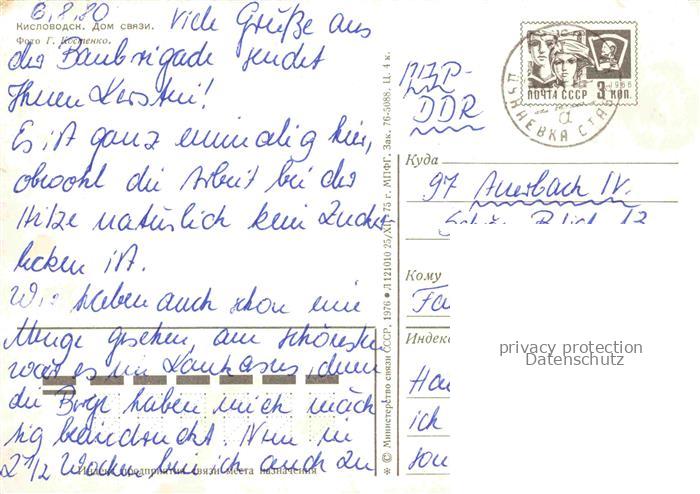 6.8.80
Кисловодск. Дом связи.
Фото Г. Костенко.
Viele Grüße aus
der Baubrigade sendet
Ihnen Kerstin!
Es ist ganz einmalig hier,
obwohl die Arbeit bei der
Hitze natürlich kein Zucker-
lecken ist.
Wir haben auch schon eine
Menge gesehen, am schönsten
war es im Kaukasus, denn
die Berge haben mich mäch-
tig beeindruckt. Nun in
2 1/2 Wochen bin ich auch zu
Индекс предприятия связи места назначения
✳ © Министерство связи СССР, 1976 ● Л 121010 25/XII-75 г. МПФГ. Зак. 76-5088. Ц. 4 к.
ПОЧТА СССР 3 КОП.
1966
СТАВ
а
ГДР-
DDR
Куда
97 Auerbach IV.
Кому
Fa
Индекс
Hau
ich
sou
privacy protection
Datenschutz